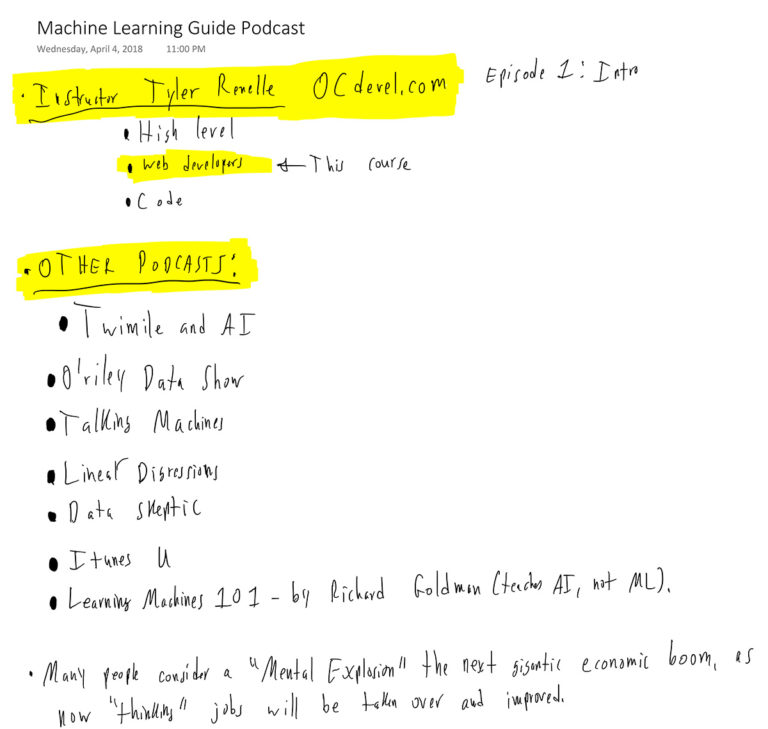 Machine Learning Guide Podcast
Wednesday, April 4, 2018 11:00 PM
• Instructor Tyler Renelle OCdevel.com Episode 1: Intro
• High level
• web developers ← This course
• Code
• OTHER PODCASTS:
• Twimile and AI
• O'riley Data Show
• Talking Machines
• Linear Digressions
• Data skeptic
• Itunes U
• Learning Machines 101 - by Richard Goldman (teaches AI, not ML).
• Many people consider a "Mental Explosion" the next gigantic economic boom, as
now "thinking" jobs will be taken over and improved.